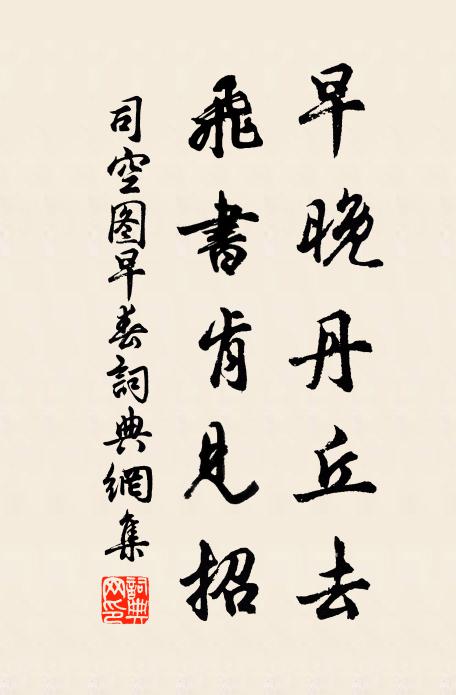 早晚丹丘去
飛書肯見招
司空图早春詞典網集
詞典网印